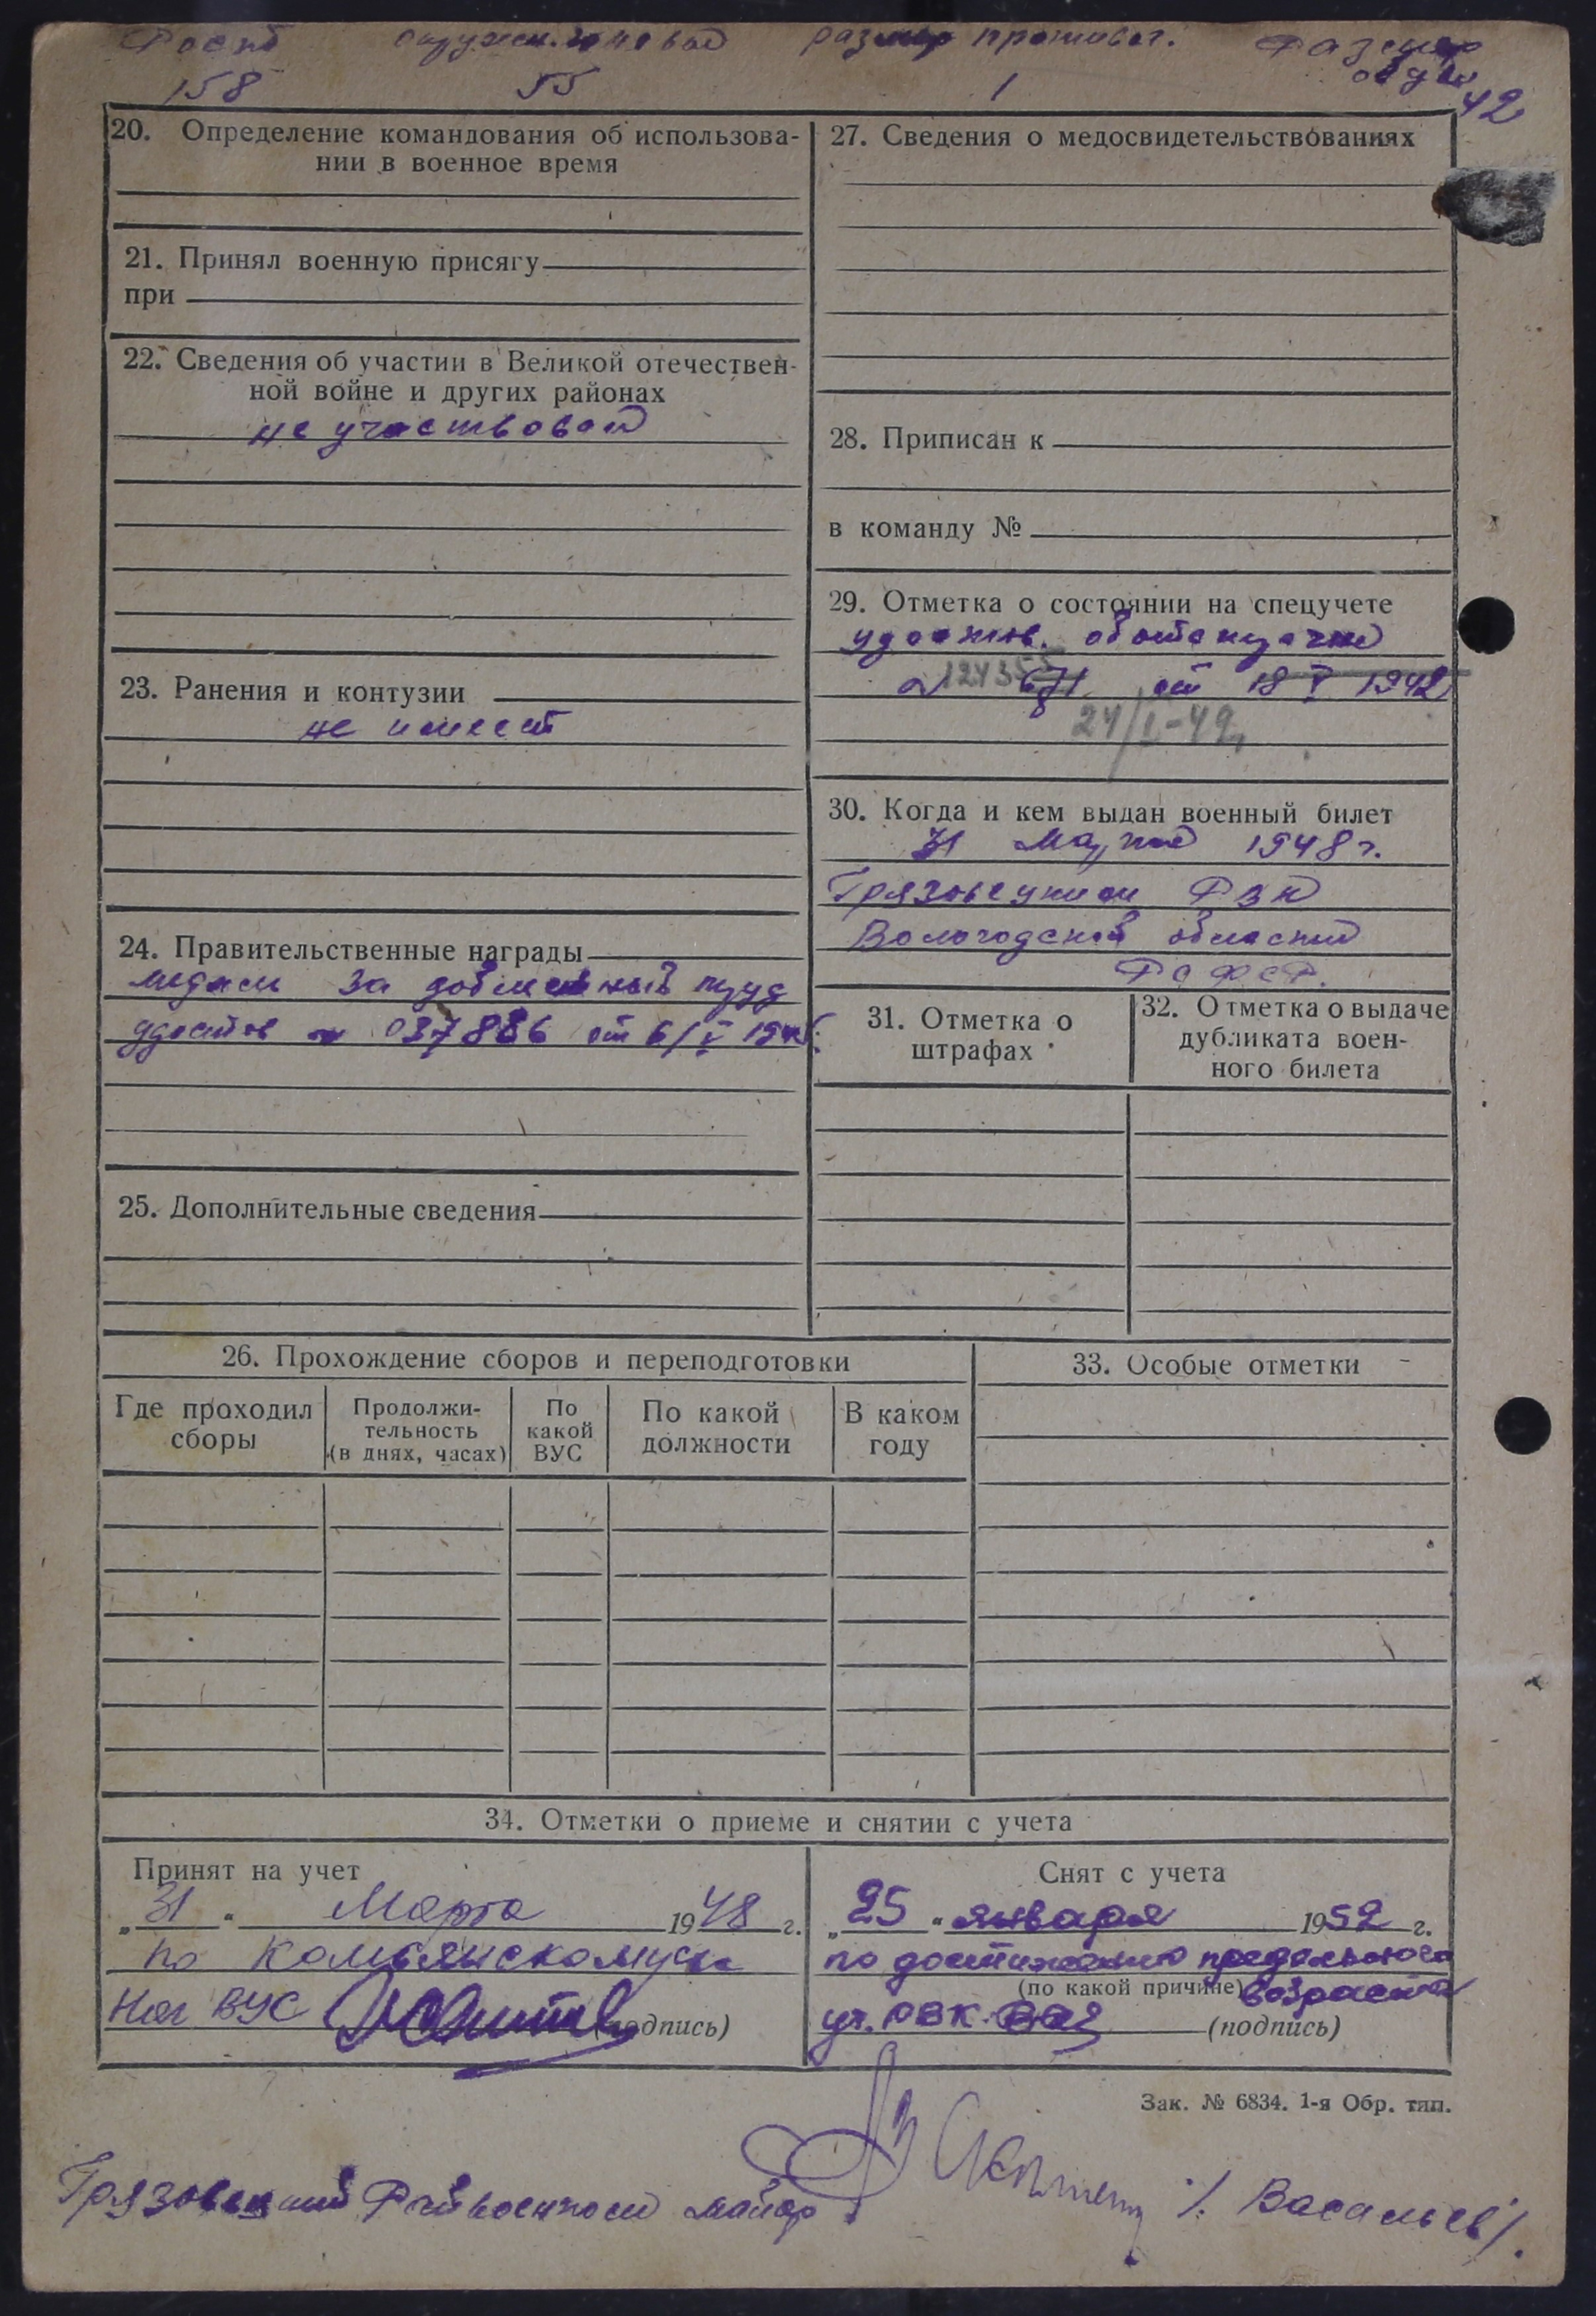 Рост окружн. головы размер противог. Размер
158 55 1 обуви 42
20. Определение командования об использова-
нии в военное время
21. Принял военную присягу
при
22. Сведения об участии в Великой отечествен-
ной войне и других районах
не участвовал
23. Ранения и контузии
не имеет
24. Правительственные награды
медаль За доблестный труд
удостов № 037886 от 6/V
25. Дополнительные сведения
27. Сведения о медосвидетельствованиях
28. Приписан к
в команду №
29. Отметка о состоянии на спецучете
удостов.
от 18 V 1942
24/I-49
30. Когда и кем выдан военный билет
31 Марта 1948 г.
Грязовецким РВК
Вологодской области
РСФСР.
31. Отметка о
штрафах
32. Отметка о выдаче
дубликата воен-
ного билета
26. Прохождение сборов и переподготовки
Где проходил
сборы
Продолжи-
тельность
(в днях, часах)
По
какой
ВУС
По какой
должности
В каком
году
33. Особые отметки
34. Отметки о приеме и снятии с учета
Принят на учет
„31“ Марта 1948 г.
по
Нач ВУС (подпись)
Снят с учета
„25“ января 1952 г.
по достижению предельного
(по какой причине) возраста
уч. РВК (подпись)
Зак. № 6834. 1-я Обр. тип.
Грязовецкий Райвоенком майор /Васильев/.